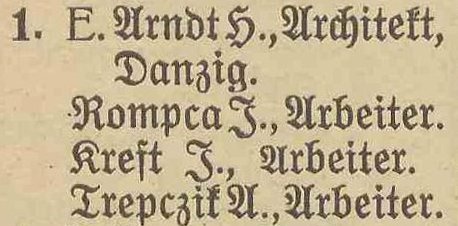 1. E. Arndt H., Architekt,
Danzig.
Rompca J., Arbeiter.
Kreft J., Arbeiter.
Trepczik A., Arbeiter.